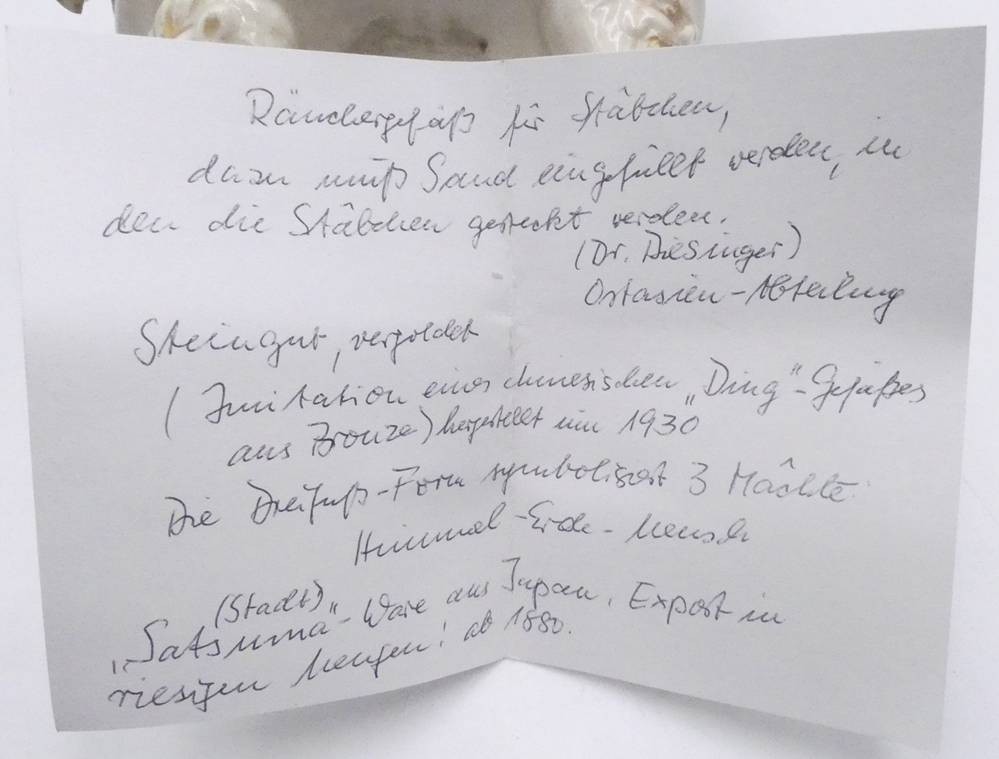 Räuchergefäß für Stäbchen,
dazu muß Sand eingefüllt werden, in
den die Stäbchen gesteckt werden.
(Dr. Diesinger)
Ostasien-Abteilung
Steingut, vergoldet
(Imitation eines chinesischen „Ding“-Gefäßes
aus Bronze) hergestellt um 1930
Die Dreifuß-Form symbolisiert 3 Mächte:
Himmel-Erde-Mensch
(Stadt)
„Satsuma“-Ware aus Japan. Export in
riesigen Mengen! ab 1880.